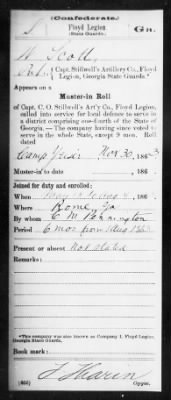 (Confederate.)
Floyd Legion
(State Guards.)
Ga.
W Scott
Capt. Stillwell's Artillery Co., Floyd
Legion, Georgia State Guards.*
Appears on a
Muster-in Roll
of Capt. C. O. Stillwell's Art'y Co., Floyd Legion,
called into service for local defence to serve in
a district comprising one-fourth of the State of
Georgia. — The company having since voted to
serve in the whole State, except 9 men. Roll
dated
Nov 30, 1863
Muster-in to date , 186 .
Joined for duty and enrolled:
When , 186 .
Where Rome, Ga
By whom C M Pennington
Period 6 mos from 1863
Present or absent Not stated
Remarks:
*This company was also known as Company I, Floyd Legion,
Georgia State Guards.
Book mark:
Copyist.